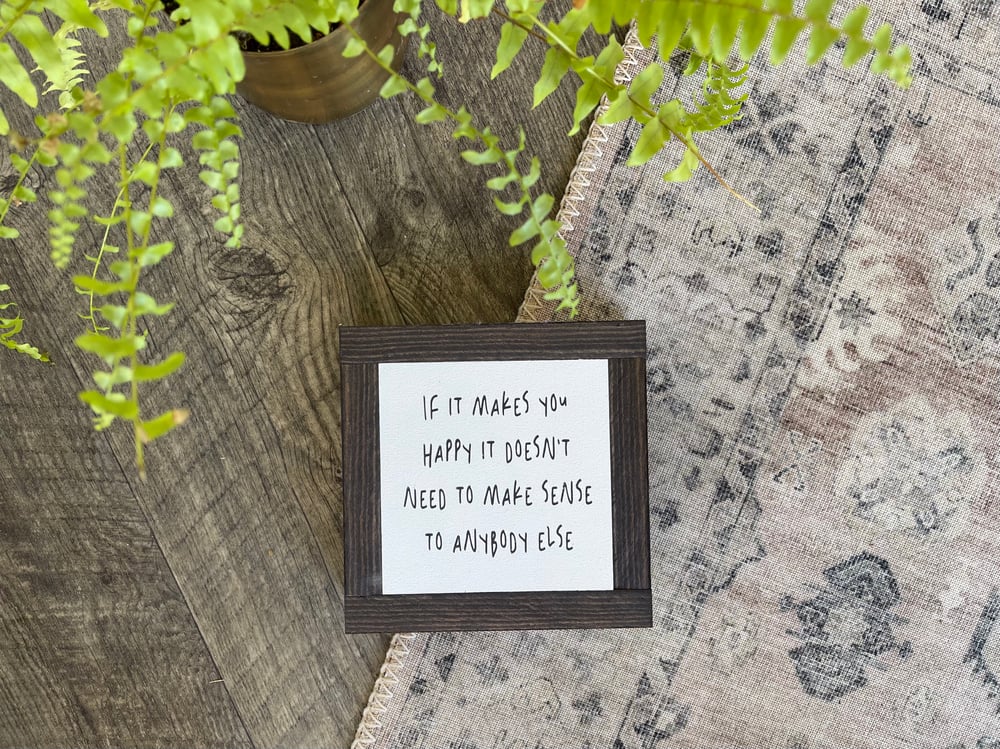 IF IT MAKES YOU
HAPPY IT DOESN'T
NEED TO MAKE SENSE
TO ANYBODY ELSE